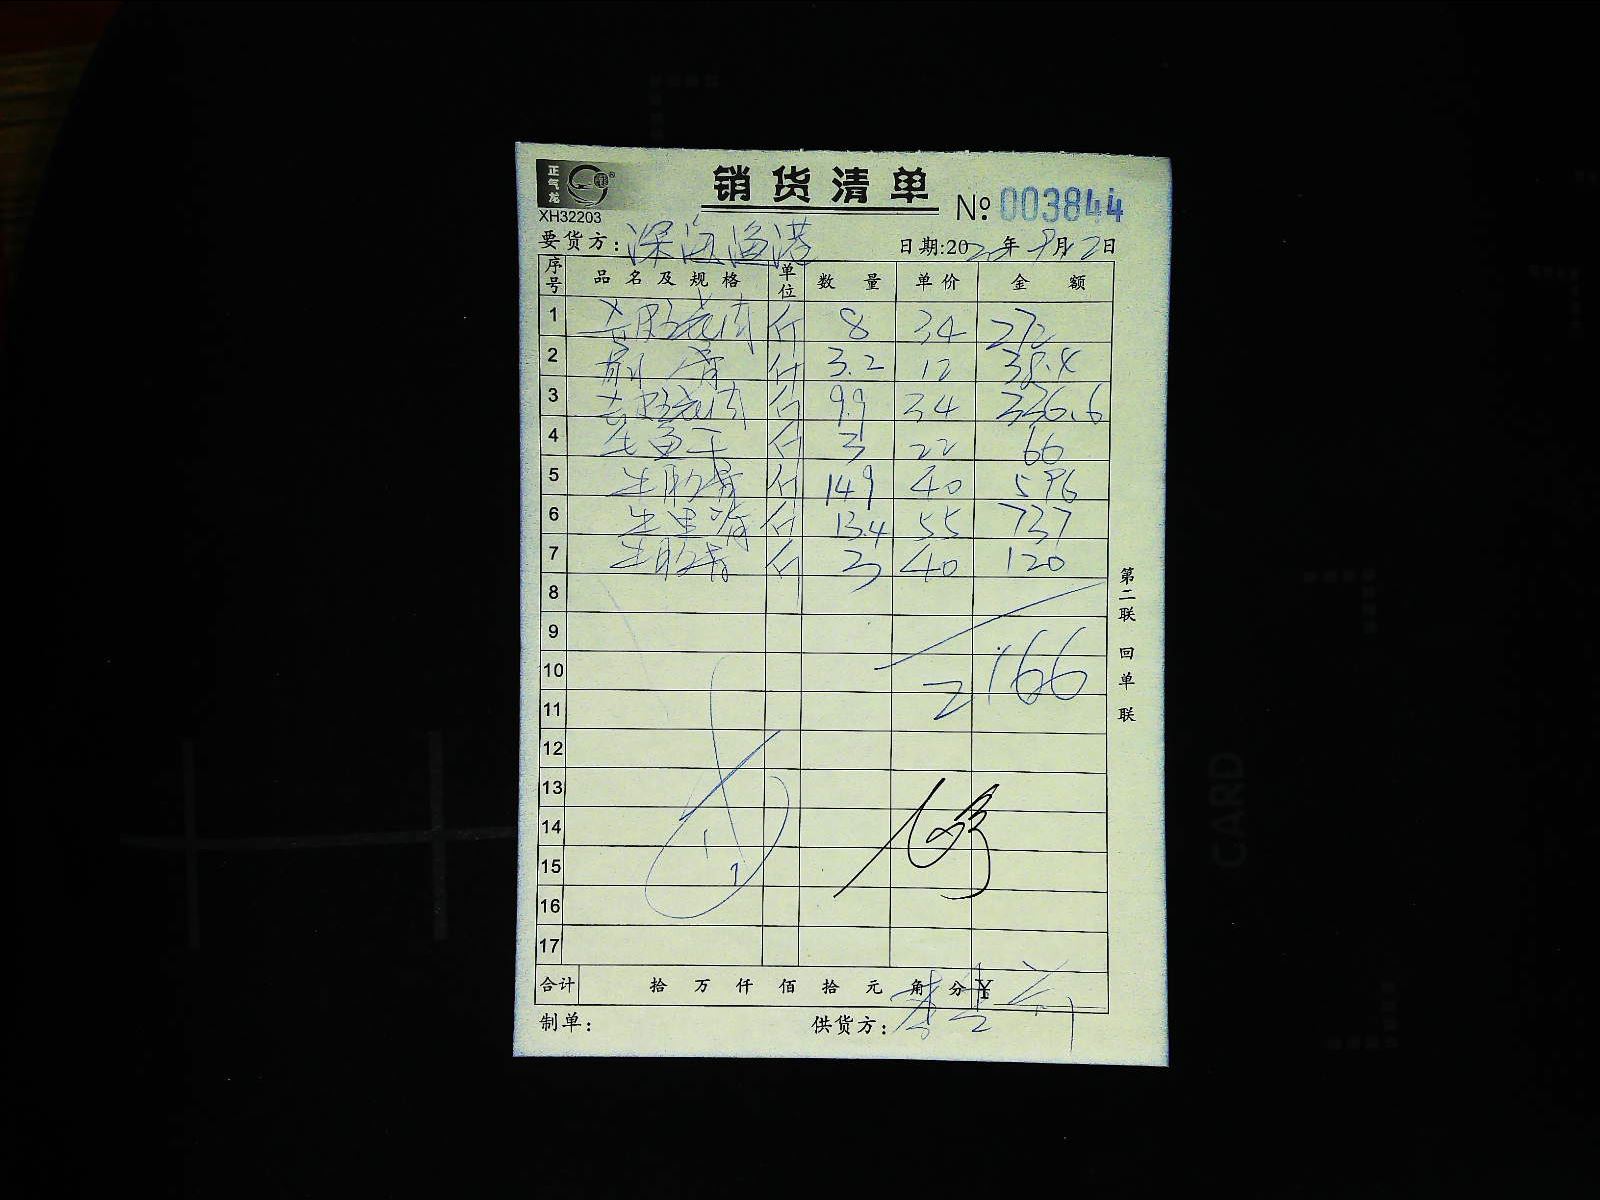 正气龙
销货清单
XH32203
№ 003844
要货方: 深海渔港 日期:2020年9月2日
序号 品名及规格 单位 数量 单价 金额
1 去皮五花肉 斤 8 34 272
2 斤 3.2 12 38.4
3 去皮五花肉 斤 9.9 34 336.6
4 斤 3 22 66
5 牛肋骨 斤 14.9 40 596
6 牛里脊 斤 13.4 55 737
7 斤 3 40 120
8
9
10 2166
11
12
13
14
15
16
17
合计 拾 万 仟 佰 拾 元 角 分 ¥
制单: 供货方:
第二联 回单联
CARD